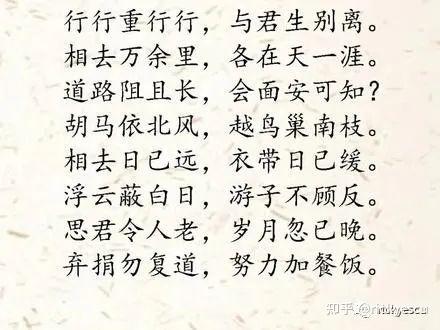 行行重行行，与君生别离。
相去万余里，各在天一涯。
道路阻且长，会面安可知？
胡马依北风，越鸟巢南枝。
相去日已远，衣带日已缓。
浮云蔽白日，游子不顾反。
思君令人老，岁月忽已晚。
弃捐勿复道，努力加餐饭。
知乎